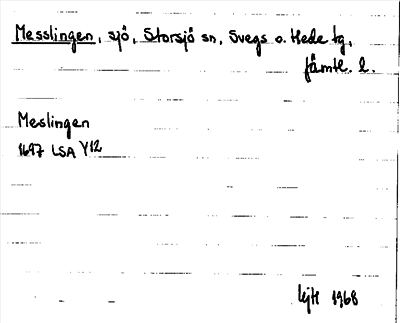 Messlingen, sjö, Storsjö sn, Svegs o. Hede tg,
Jämtl. l.
Meslingen
1697 LSA Y12
1968